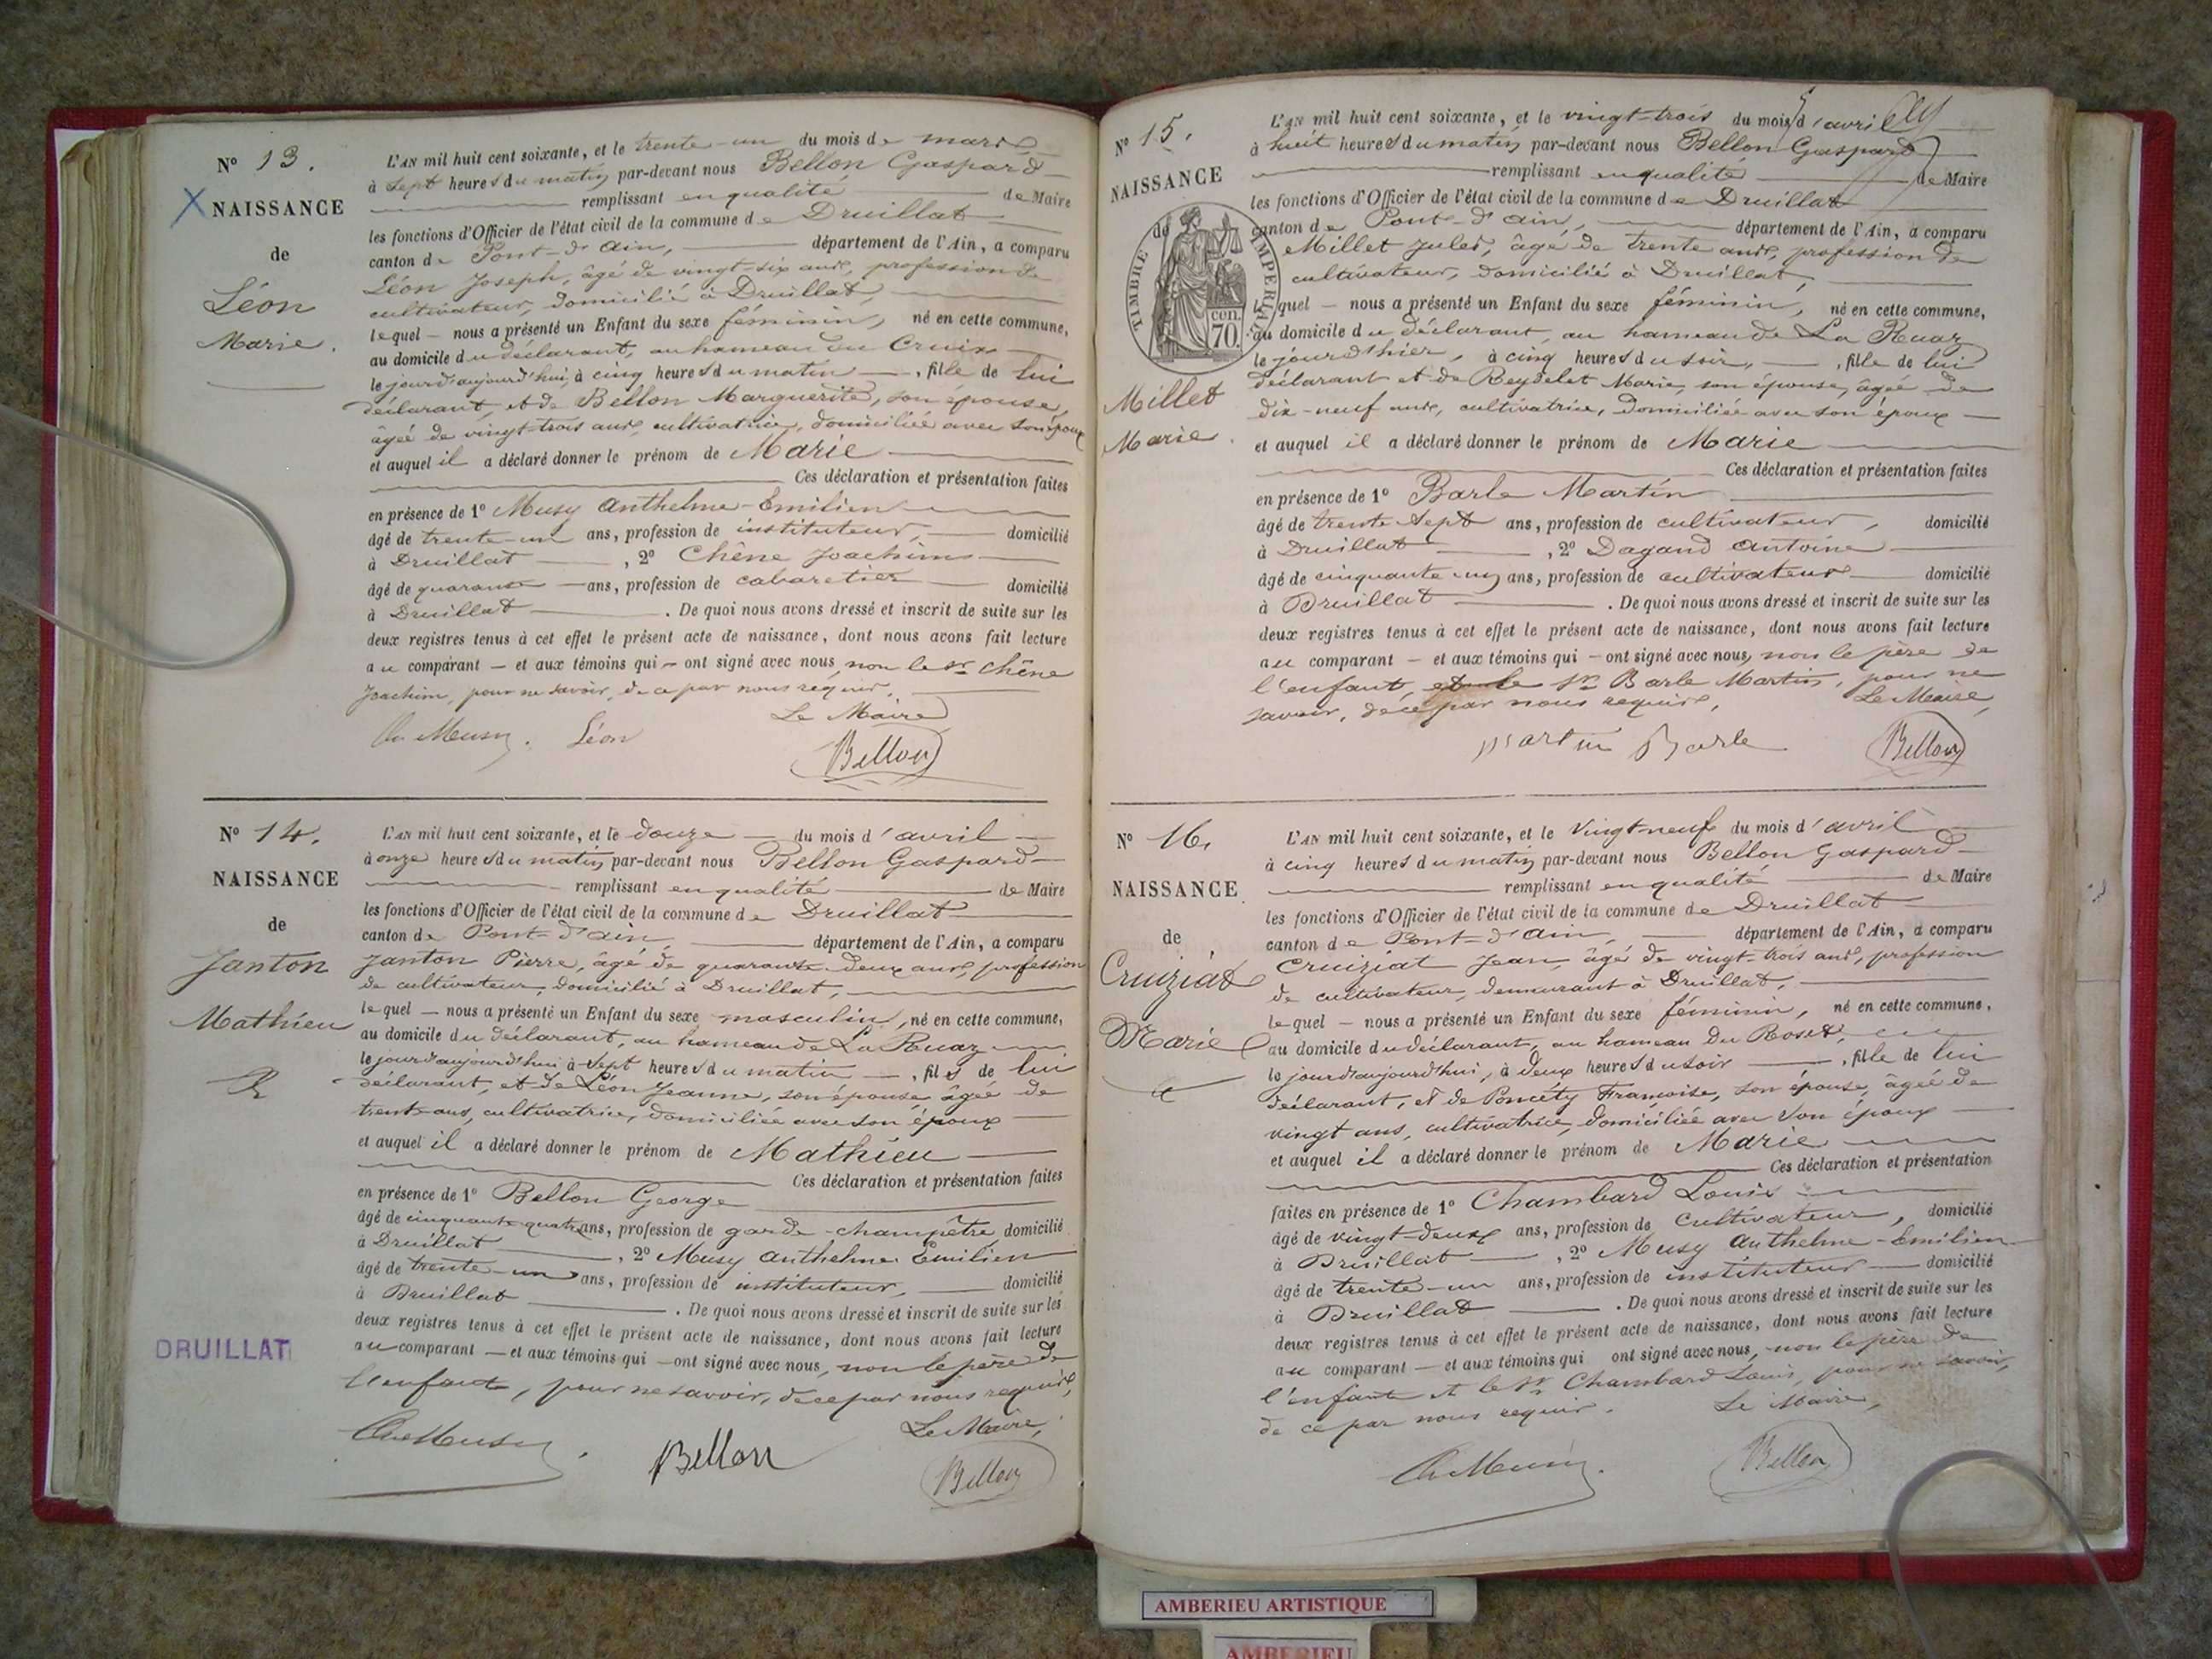 N° 13.
NAISSANCE
de
Léon
Marie.
L'AN mil huit cent soixante, et le trente-un du mois de mars
à sept heures du matin par-devant nous Bellon Gaspard
remplissant en qualité de Maire
les fonctions d'Officier de l'état civil de la commune de Druillat
canton de Pont-d'ain, département de l'Ain, a comparu
Léon Joseph, âgé de vingt-six ans, profession de
cultivateur, domicilié à Druillat,
lequel nous a présenté un Enfant du sexe féminin, né en cette commune,
au domicile du déclarant, au hameau du Cruix
le jourd'aujourd'hui, à cinq heures du matin, fille de lui
déclarant, et de Bellon Marguerite, son épouse,
âgée de vingt-trois ans, cultivatrice, domiciliée avec son époux
et auquel il a déclaré donner le prénom de Marie
Ces déclaration et présentation faites
en présence de 1° Musy Anthelme-Emilien
âgé de trente-un ans, profession de instituteur, domicilié
à Druillat, 2° Chêne Joachim
âgé de quarante ans, profession de cabaretier domicilié
à Druillat. De quoi nous avons dressé et inscrit de suite sur les
deux registres tenus à cet effet le présent acte de naissance, dont nous avons fait lecture
au comparant — et aux témoins qui — ont signé avec nous, non le sr Chêne
Joachim, pour ne savoir, de ce par nous requis.
Le Maire
Musy. Léon
Bellon
N° 14.
NAISSANCE
de
Janton
Mathieu
DRUILLAT
L'AN mil huit cent soixante, et le douze du mois d'avril
à onze heures du matin par-devant nous Bellon Gaspard
remplissant en qualité de Maire
les fonctions d'Officier de l'état civil de la commune de Druillat
canton de Pont-d'ain, département de l'Ain, a comparu
Janton Pierre, âgé de quarante-deux ans, profession
de cultivateur, domicilié à Druillat,
lequel — nous a présenté un Enfant du sexe masculin, né en cette commune,
au domicile du déclarant, au hameau de La Ruaz
le jourd'aujourd'hui à sept heures du matin, fils de lui
déclarant, et de Léon Jeanne, son épouse, âgée de
trente ans, cultivatrice, domiciliée avec son époux
et auquel il a déclaré donner le prénom de Mathieu
Ces déclaration et présentation faites
en présence de 1° Bellon George
âgé de cinquante-quatre ans, profession de garde-champêtre, domicilié
à Druillat, 2° Musy Anthelme Emilien
âgé de trente-un ans, profession de instituteur, domicilié
à Druillat. De quoi nous avons dressé et inscrit de suite sur les
deux registres tenus à cet effet le présent acte de naissance, dont nous avons fait lecture
au comparant — et aux témoins qui — ont signé avec nous, non le père de
l'enfant, pour ne savoir, de ce par nous requis,
Le Maire,
Musy. Bellon
Bellon
N° 15.
NAISSANCE
de
TIMBRE IMPERIAL
70 cen.
Millet
Marie.
L'AN mil huit cent soixante, et le vingt-trois du mois d'avril
à huit heures du matin par-devant nous Bellon Gaspard
remplissant en qualité de Maire
les fonctions d'Officier de l'état civil de la commune de Druillat
canton de Pont-d'ain, département de l'Ain, a comparu
Millet Jules, âgé de trente ans, profession de
cultivateur, domicilié à Druillat,
lequel — nous a présenté un Enfant du sexe féminin, né en cette commune,
au domicile du déclarant, au hameau de La Ruaz
le jour d'hier, à cinq heures du soir, fille de lui
déclarant et de Reydelet Marie, son épouse, âgée de
dix-neuf ans, cultivatrice, domiciliée avec son époux
et auquel il a déclaré donner le prénom de Marie
Ces déclaration et présentation faites
en présence de 1° Barle Martin
âgé de trente-sept ans, profession de cultivateur, domicilié
à Druillat, 2° Dagand Antoine
âgé de cinquante ans, profession de cultivateur domicilié
à Druillat. De quoi nous avons dressé et inscrit de suite sur les
deux registres tenus à cet effet le présent acte de naissance, dont nous avons fait lecture
au comparant — et aux témoins qui — ont signé avec nous, non le père de
l'enfant, sr Barle Martin, pour ne
savoir, de ce par nous requis,
Le Maire,
Martin Barle
Bellon
N° 16.
NAISSANCE
de
Cruiziat
Marie
L'AN mil huit cent soixante, et le vingt-neuf du mois d'avril
à cinq heures du matin par-devant nous Bellon Gaspard
remplissant en qualité de Maire
les fonctions d'Officier de l'état civil de la commune de Druillat
canton de Pont-d'ain, département de l'Ain, a comparu
Cruiziat Jean, âgé de vingt-trois ans, profession
de cultivateur, demeurant à Druillat,
lequel — nous a présenté un Enfant du sexe féminin, né en cette commune,
au domicile du déclarant, au hameau du Roset,
le jourd'aujourd'hui, à deux heures du soir, fille de lui
déclarant, et de Poncéty Françoise, son épouse, âgée de
vingt ans, cultivatrice, domiciliée avec son époux
et auquel il a déclaré donner le prénom de Marie
Ces déclaration et présentation
faites en présence de 1° Chambard Louis
âgé de vingt-deux ans, profession de cultivateur, domicilié
à Druillat, 2° Musy Anthelme-Emilien
âgé de trente-un ans, profession de instituteur domicilié
à Druillat. De quoi nous avons dressé et inscrit de suite sur les
deux registres tenus à cet effet le présent acte de naissance, dont nous avons fait lecture
au comparant — et aux témoins qui ont signé avec nous, non le père de
l'enfant et le sr Chambard Louis, pour ne savoir,
de ce par nous requis.
Le Maire,
Musy.
Bellon
AMBERIEU ARTISTIQUE
AMBERIEU